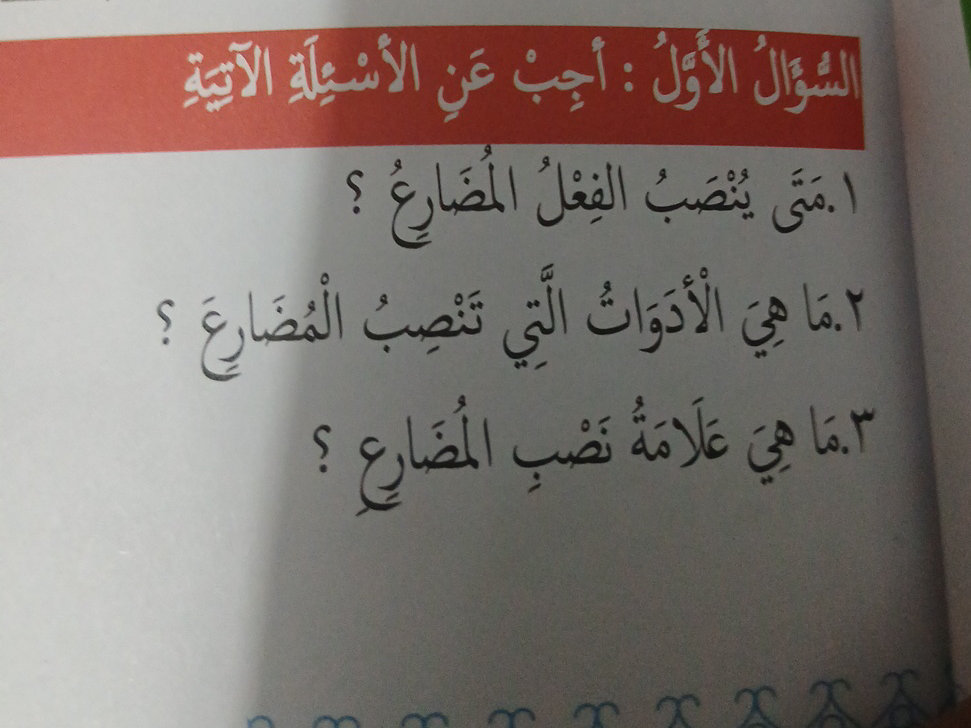 السُّؤَالُ الأَوَّلُ : أَجِبْ عَنِ الأَسْئِلَةِ الآتِيَةِ
١.مَتَى يُنْصَبُ الفِعْلُ المُضَارِعُ ؟
٢.مَا هِيَ الْأَدَوَاتُ الَّتِي تَنْصِبُ الْمُضَارِعَ ؟
٣.مَا هِيَ عَلَامَةُ نَصْبِ المُضَارِعِ ؟